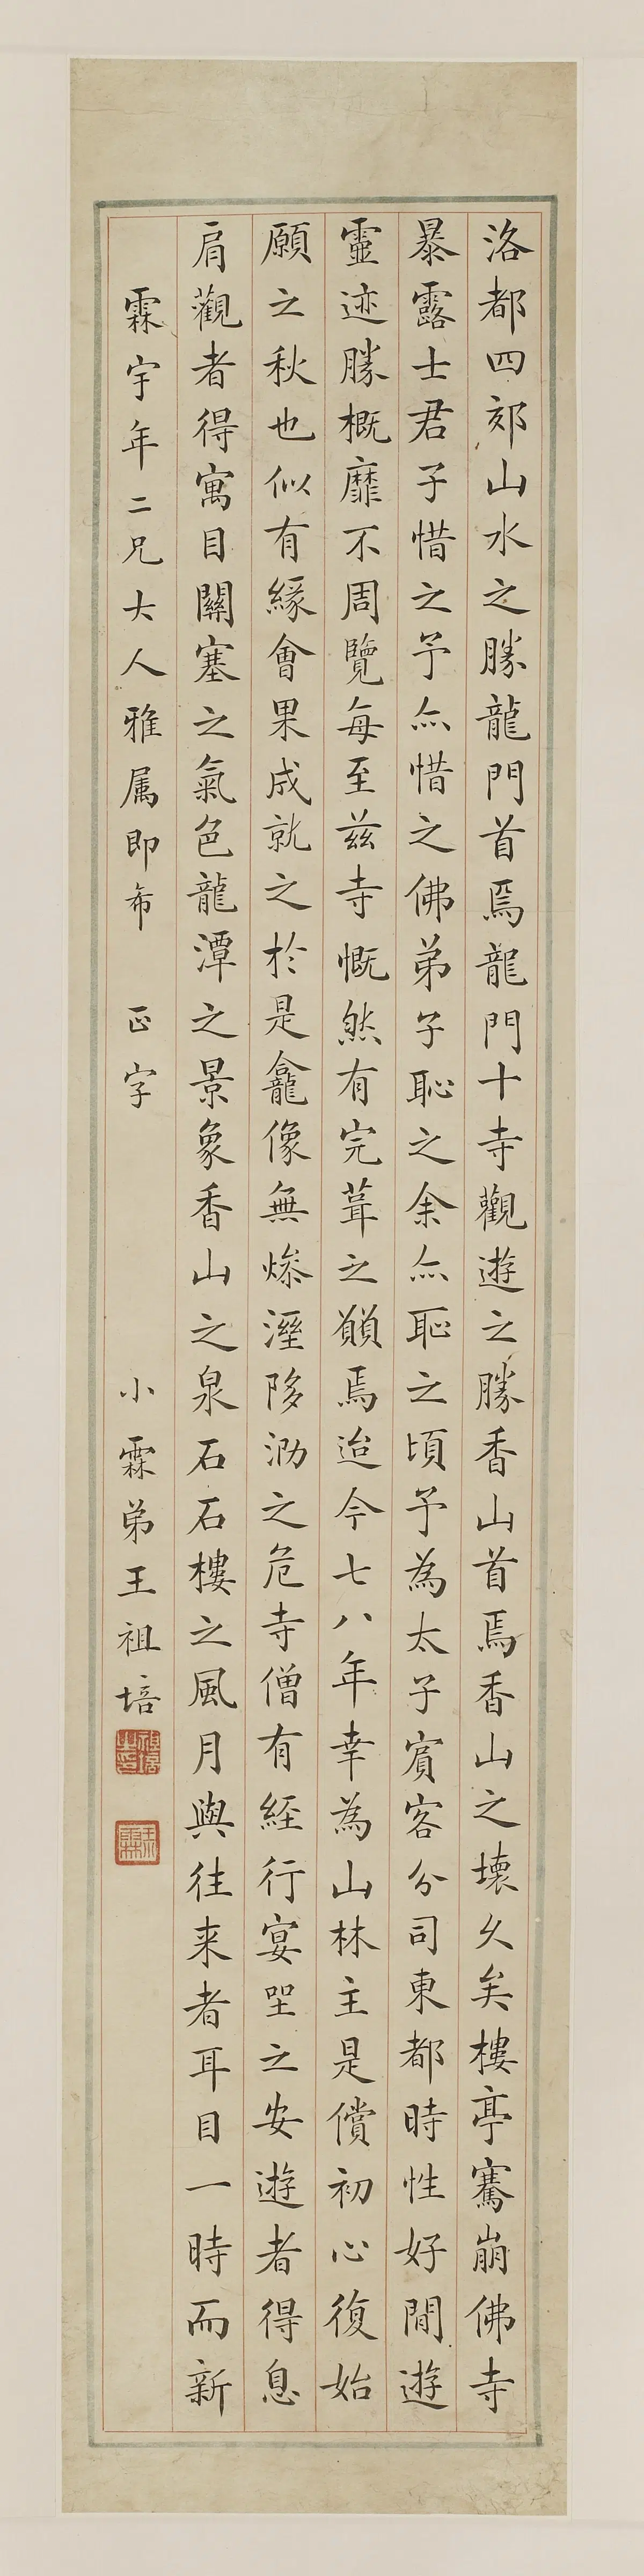 洛都四郊山水之勝龍門首焉龍門十寺觀遊之勝香山首焉香山之壞久矣樓亭騫崩佛寺
暴露士君子惜之予亦惜之佛弟子恥之余亦恥之頃予為太子賓客分司東都時性好閒遊
靈迹勝概靡不周覽每至茲寺慨然有完葺之願焉迨今七八年幸為山林主是償初心復始
願之秋也似有緣會果成就之於是龕像無燥溼陊泐之危寺僧有經行宴坐之安遊者得息
肩觀者得寓目關塞之氣色龍潭之景象香山之泉石石樓之風月與往来者耳目一時而新
霖宇年二兄大人雅属即希 正字 小霖弟王祖培